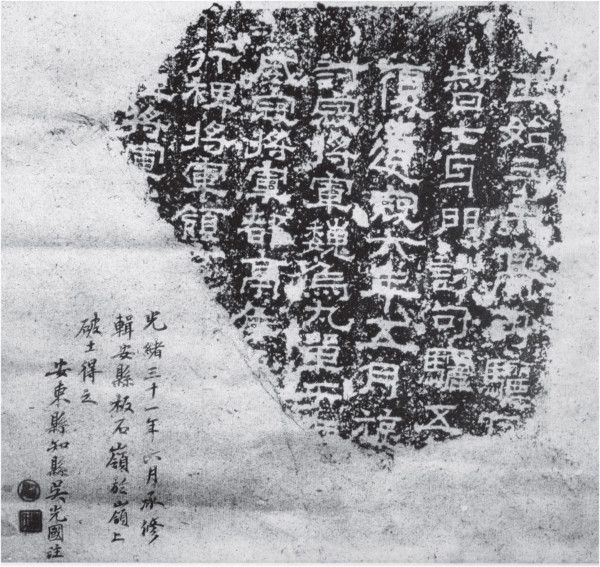 正始三年高句驪
督七牙門討句驪五
復遣寇六年五月旋
討寇將軍魏烏丸單于
威寇將軍都亭侯
行裨將軍領
將軍
光緒三十一年八月承修
輯安縣板石嶺於嶺上
破土得之
安東縣知縣吳光國注